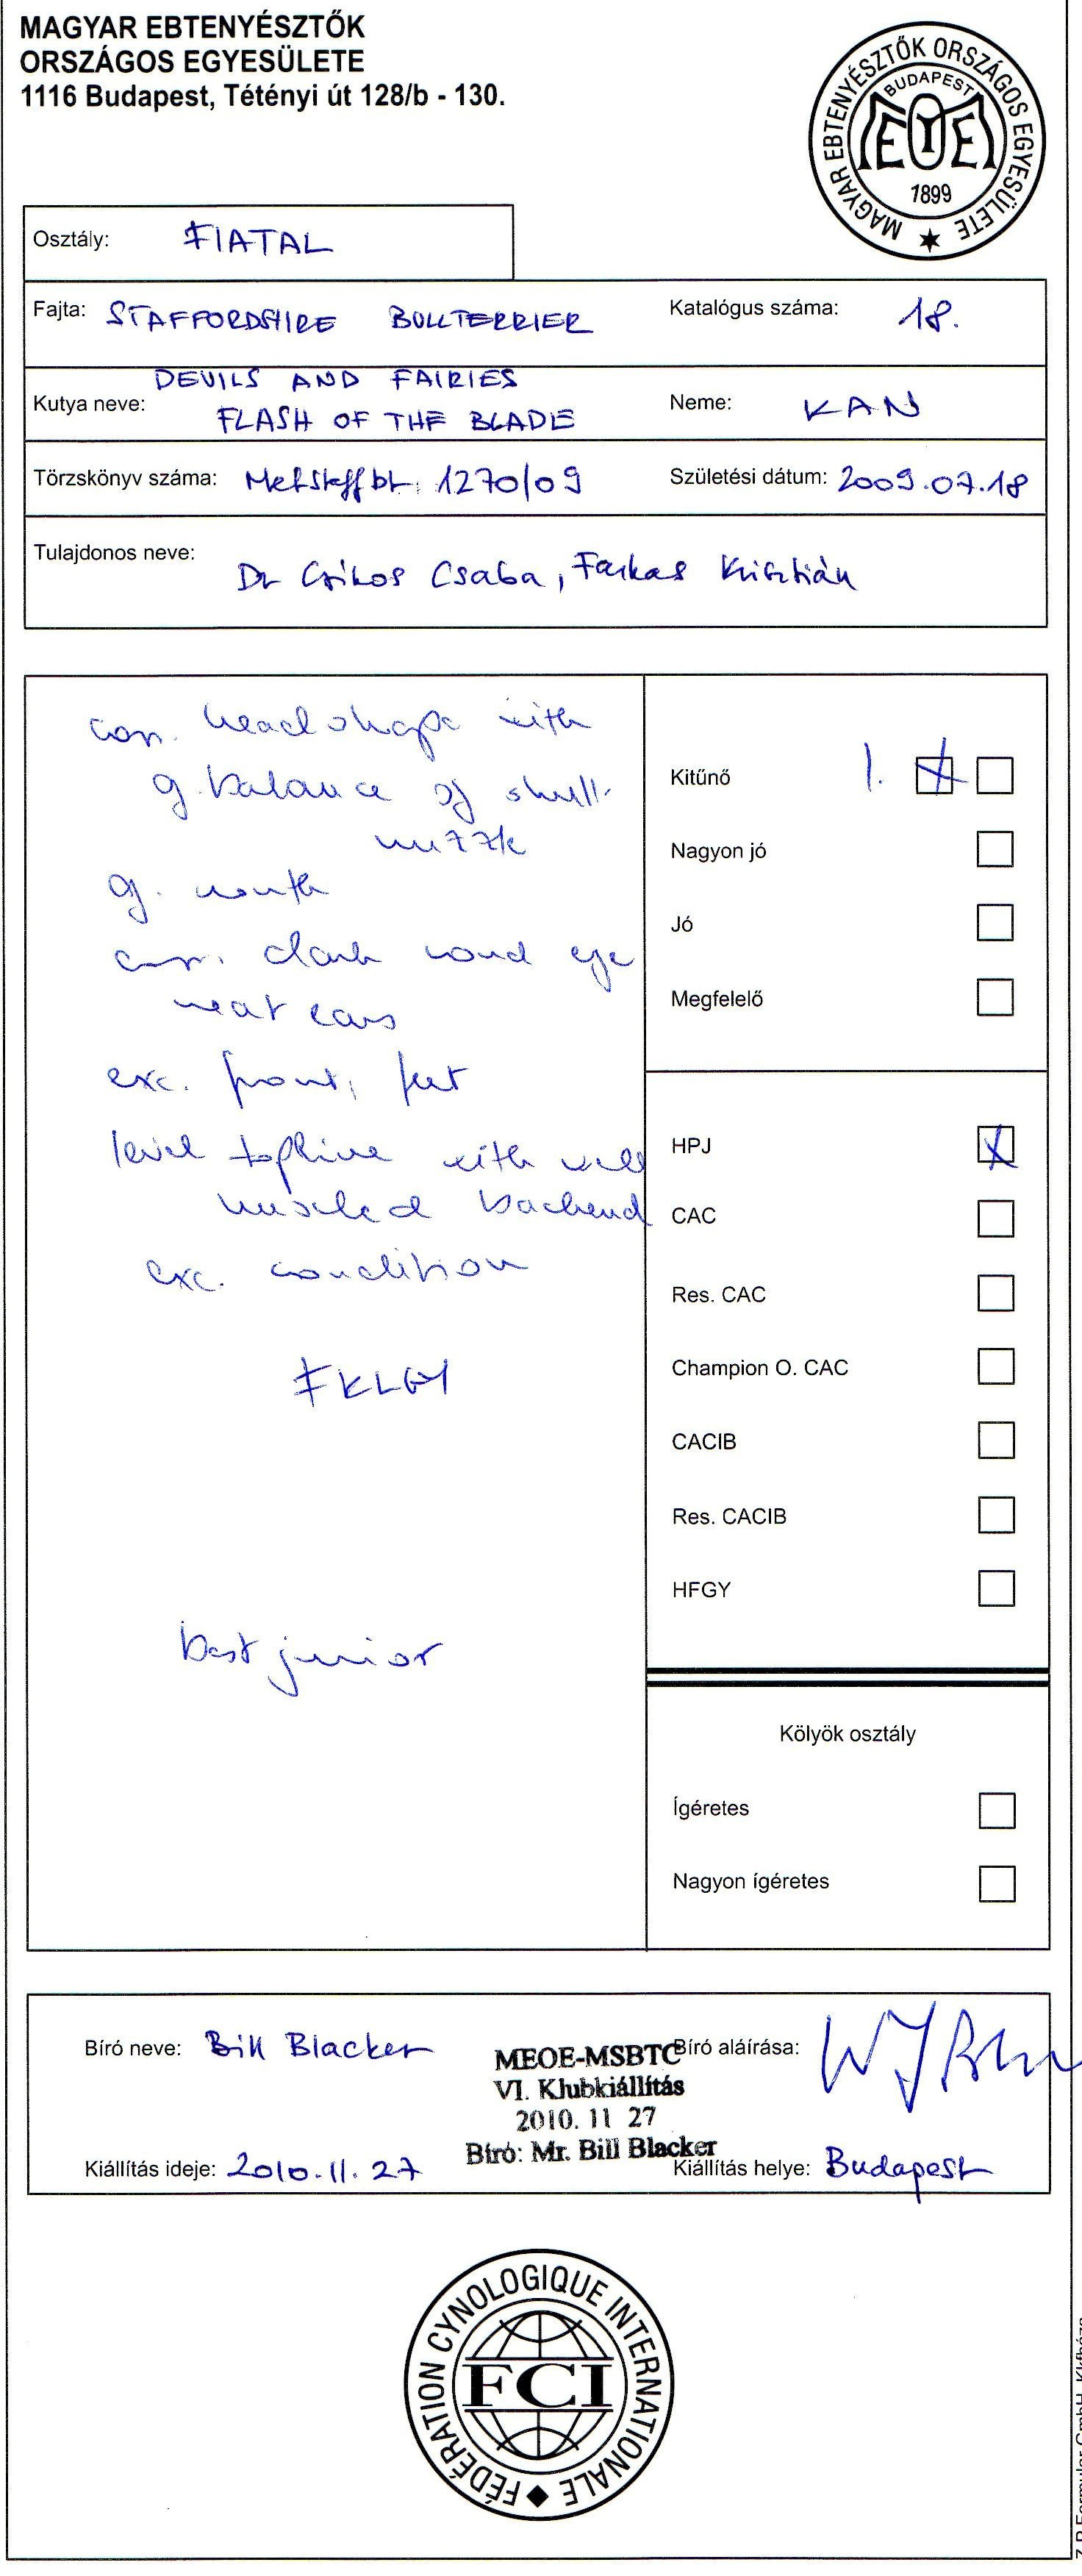 MAGYAR EBTENYÉSZTŐK
ORSZÁGOS EGYESÜLETE
1116 Budapest, Tétényi út 128/b - 130.
MAGYAR EBTENYÉSZTŐK ORSZÁGOS EGYESÜLETE
BUDAPEST
MEOE
1899
Osztály: FIATAL
Fajta: STAFFORDSHIRE BULLTERRIER Katalógus száma: 18.
DEVILS AND FAIRIES
Kutya neve: FLASH OF THE BLADE Neme: KAN
Törzskönyv száma: Metstaffbt. 1270/09 Születési dátum: 2009.07.18
Tulajdonos neve: Dr Csikos Csaba, Farkas Krisztián
corr. head shape with
g. balance of skull-
muzzle
g. mouth
corr. dark round eye
neat ears
exc. front, feet
level topline with well
muscled backend
exc. condition
FKLGY
best junior
Kitűnő 1.
Nagyon jó
Jó
Megfelelő
HPJ X
CAC
Res. CAC
Champion O. CAC
CACIB
Res. CACIB
HFGY
Kölyök osztály
Ígéretes
Nagyon ígéretes
Bíró neve: Bill Blacker Bíró aláírása:
MEOE-MSBTC
VI. Klubkiállítás
2010. 11 27
Bíró: Mr. Bill Blacker
Kiállítás ideje: 2010.11.27 Kiállítás helye: Budapest
FÉDÉRATION CYNOLOGIQUE INTERNATIONALE
FCI